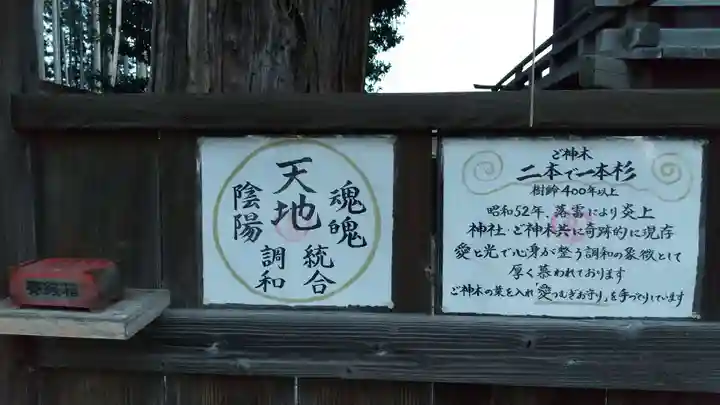 天地
陰陽
魂魄
統合
調和
ご神木
二本で一本杉
樹齢400年以上
昭和52年、落雷により炎上
神社・ご神木共に奇跡的に現存
愛と光で心身が整う調和の象徴として
厚く慕われております
ご神木の葉を入れ「愛つむぎお守り」を手づくりしています
賽銭箱